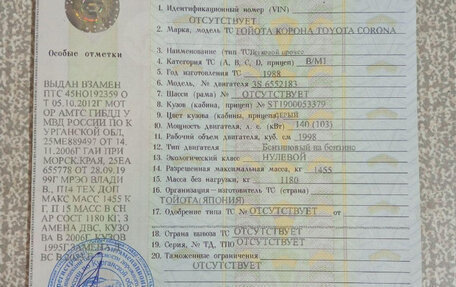 Особые отметки
ВЫДАН ВЗАМЕН
ПТС 45НО192359 О
Т 05.10.2012Г МОТ
ОР АМТС ГИБДД У
МВД РОССИИ ПО К
УРГАНСКОЙ ОБЛ,
25МЕ889497 ОТ 14
.11.2006Г ГАИ ПРИ
МОРСК.КРАЯ, 25ЕА
655778 ОТ 28.09.19
99Г МРЭО ВЛАДИ
В., П14 ТЕХ ДОП
МАКС МАСС 1455 К
Г, П 15 МАСС В СН
АР СОСТ 1180 КГ, З
АМЕНА ДВС, КУЗО
ВА В 2006Г, КУЗОВ
1995Г,ЗАМЕНА
ВС В
1. Идентификационный номер (VIN)
ОТСУТСТВУЕТ
2. Марка, модель ТС ТОЙОТА КОРОНА,TOYOTA CORONA
3. Наименование (тип ТС) Легковой прочее
4. Категория ТС (А, В, С, D, прицеп) B/M1
5. Год изготовления ТС 1988
6. Модель, № двигателя 3S 6552183
7. Шасси (рама) № ОТСУТСТВУЕТ
8. Кузов (кабина, прицеп) № ST1900053379
9. Цвет кузова (кабины, прицепа) СЕРЫЙ
10. Мощность двигателя, л. с. (кВт) 140 (103)
11. Рабочий объем двигателя, куб. см 1998
12. Тип двигателя Бензиновый на бензине
13. Экологический класс НУЛЕВОЙ
14. Разрешенная максимальная масса, кг 1455
15. Масса без нагрузки, кг 1180
16. Организация – изготовитель ТС (страна)
ТОЙОТА(ЯПОНИЯ)
17. Одобрение типа ТС № ОТСУТСТВУЕТ от
18. Страна вывоза ТС ОТСУТСТВУЕТ
19. Серия, № ТД, ТПО ОТСУТСТВУЕТ
20. Таможенные ограничения
ОТСУТСТВУЕТ